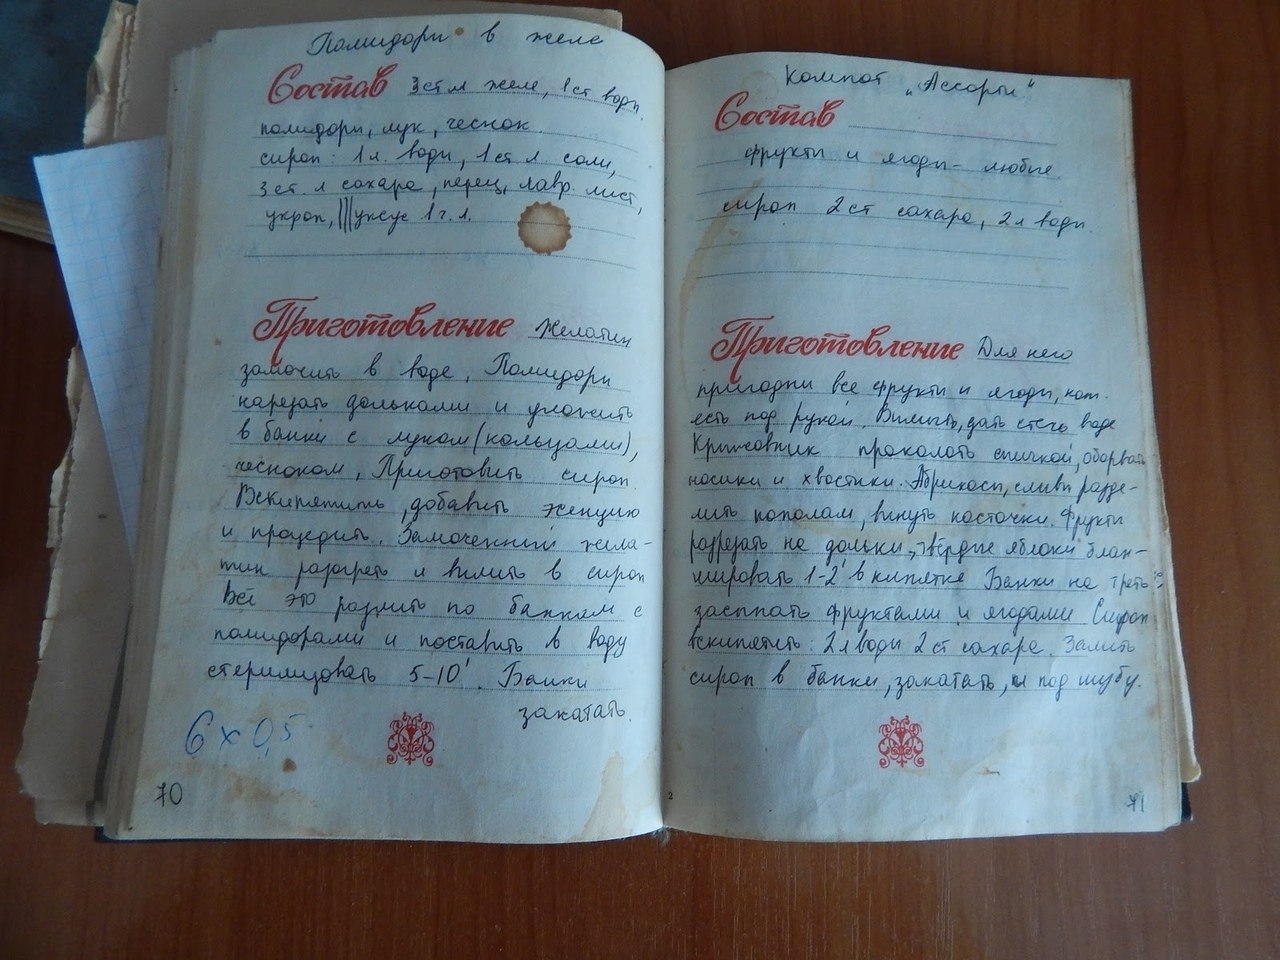 Помидори в желе
Состав 3 ст л желе, 1 ст води.
помидори, лук, чеснок.
сироп: 1 л. води, 1 ст л. соли,
3 ст. л сахара, перец, лавр. лист,
укроп, уксус 1 ч. л.
Приготовление Желатин
замочить в воде. Помидори
нарезать дольками и уложить
в банки с луком (кольцами),
чесноком, Приготовить сироп.
Вскипятить, добавить эсенцию
и процедить. Замоченний жела-
тин разогреть и вилить в сироп
Всё это разлить по банкам с
помидорами и поставить в воду
стерилизовать 5-10'. Банки
закатать.
6 x 0,5
70
Компот „Ассорти"
Состав
фрукты и ягоды - любые
сироп 2 ст сахара, 2 л води.
Приготовление Для него
пригодни все фрукты и ягоды, кот.
есть под рукой. Вимить, дать стечь воде
Крижовник проколоть спичкой, оборвать
носики и хвостики. Абрикоси, сливи разде-
лить пополам, винуть косточки. Фрукти
разрезать на дольки, твёрдие яблоки блан-
шировать 1-2' в кипятке Банки на треть
засыпать фруктами и ягодами Сироп
вскипятить: 2 л води 2 ст сахара. Залить
сироп в банки, закатать, и под шубу.
2
71